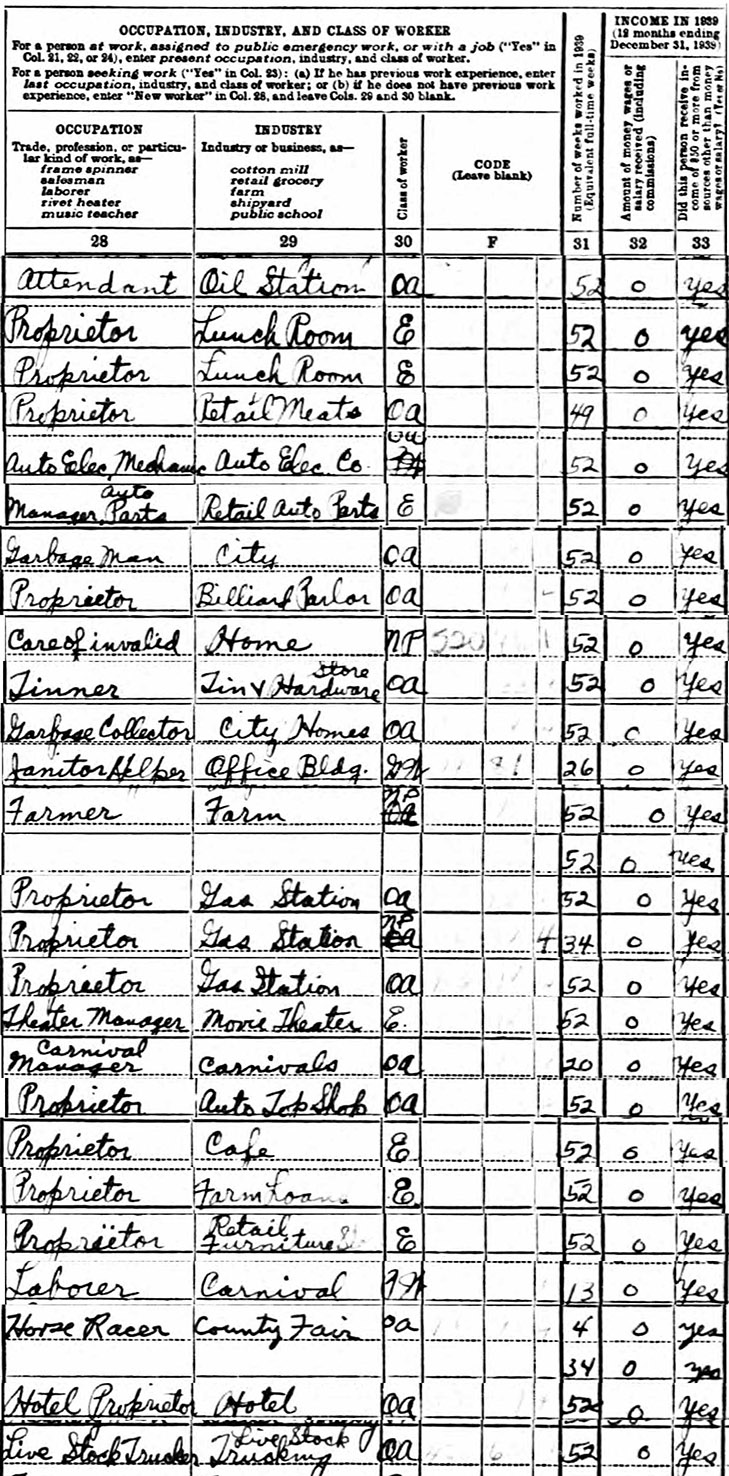 OCCUPATION, INDUSTRY, AND CLASS OF WORKER
For a person at work, assigned to public emergency work, or with a job ("Yes" in
Col. 21, 22, or 24), enter present occupation, industry, and class of worker.
For a person seeking work ("Yes" in Col. 23): (a) If he has previous work experience, enter
last occupation, industry, and class of worker; or (b) if he does not have previous work
experience, enter "New worker" in Col. 28, and leave Cols. 29 and 30 blank.
OCCUPATION
Trade, profession, or particu-
lar kind of work, as—
frame spinner
salesman
laborer
rivet heater
music teacher
INDUSTRY
Industry or business, as—
cotton mill
retail grocery
farm
shipyard
public school
Class of worker
CODE
(Leave blank)
Number of weeks worked in 1939
(Equivalent full-time weeks)
INCOME IN 1939
(12 months ending
December 31, 1939)
Amount of money wages or
salary received (including
commissions)
Did this person receive in-
come of $50 or more from
sources other than money
wages or salary? (Yes or No)
28 29 30 F 31 32 33
Attendant Oil Station Oa 52 0 yes
Proprietor Lunch Room E 52 0 yes
Proprietor Lunch Room E 52 0 yes
Proprietor Retail Meats Oa 49 0 yes
Auto Elec. Mechanic Auto Elec. Co. Oa 52 0 yes
Manager Auto Parts Retail Auto Parts E 52 0 yes
Garbage Man City Oa 52 0 yes
Proprietor Billiard Parlor Oa 52 0 yes
Care of invalid Home NP 520 1 52 0 yes
Tinner Tin & Hardware Store Oa 52 0 Yes
Garbage Collector City Homes Oa 52 0 Yes
Janitor Helper Office Bldg. 26 0 yes
Farmer Farm NP 52 0 yes
52 0 yes
Proprietor Gas Station Oa 52 0 Yes
Proprietor Gas Station NP 4 34 0 Yes
Proprietor Gas Station Oa 52 0 Yes
Theater Manager Movie Theater E 52 0 Yes
Carnival Manager Carnivals Oa 20 0 Yes
Proprietor Auto Top Shop Oa 52 0 Yes
Proprietor Cafe E 52 0 Yes
Proprietor Farm Loans E 52 0 yes
Proprietor Retail Furniture E 52 0 Yes
Laborer Carnival 13 0 Yes
Horse Racer County Fair Oa 4 0 yes
34 0 yes
Hotel Proprietor Hotel Oa 52 0 Yes
Live Stock Trucker Live Stock Trucking Oa 6 52 0 Yes